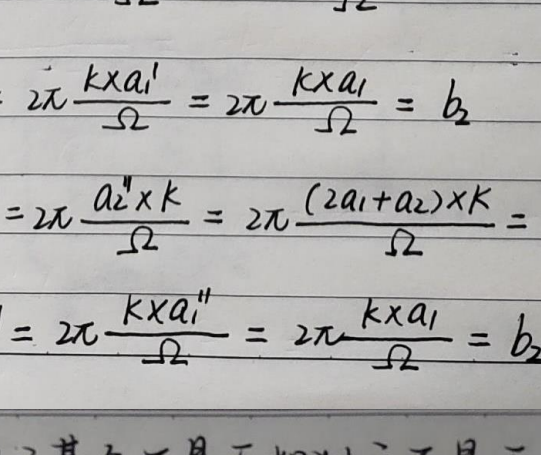 2π k×a₁'/Ω = 2π k×a₁/Ω = b₂
= 2π a₂''×k/Ω = 2π (2a₁+a₂)×k/Ω =
= 2π k×a₁''/Ω = 2π k×a₁/Ω = b₂